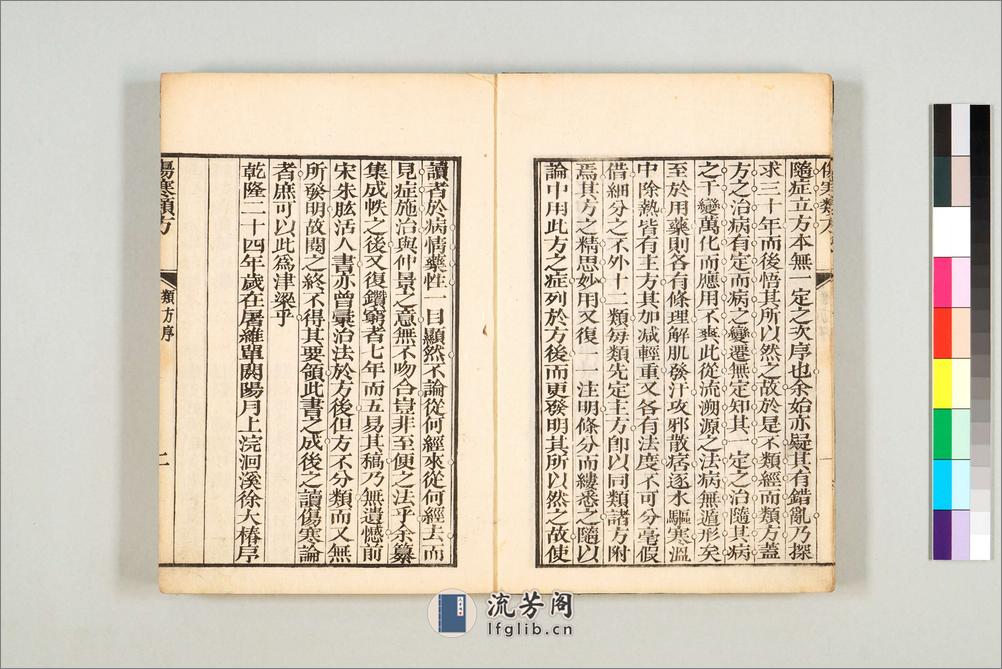 傷寒類方
隨症立方本無一定之次序也余始亦疑其有錯亂乃探
求三十年而後悟其所以然之故於是不類經而類方蓋
方之治病有定而病之變遷無定知其一定之治隨其病
之千變萬化而應用不爽此從流溯源之法病無遁形矣
至於用藥則各有條理解肌發汗攻邪散痞逐水驅寒溫
中除熱皆有主方其加減輕重又各有法度不可分毫假
借細分之不外十二類每類先定主方卽以同類諸方附
焉其方之精思妙用又復一一注明條分而縷悉之隨以
論中用此方之症列於方後而更發明其所以然之故使
讀者於病情藥性一目顯然不論從何經來從何經去而
見症施治與仲景之意無不吻合豈非至便之法乎余纂
集成帙之後又復鑽窮者七年而五易其稿乃無遺憾前
宋朱肱活人書亦曾彙治法於方後但方不分類而又無
所發明故閱之終不得其要領此書之成後之讀傷寒論
者庶可以此爲津梁乎
乾隆二十四年歲在屠維單閼陽月上浣洄溪徐大椿序
傷寒類方
類方序
二
流芳阁
lfglib.cn